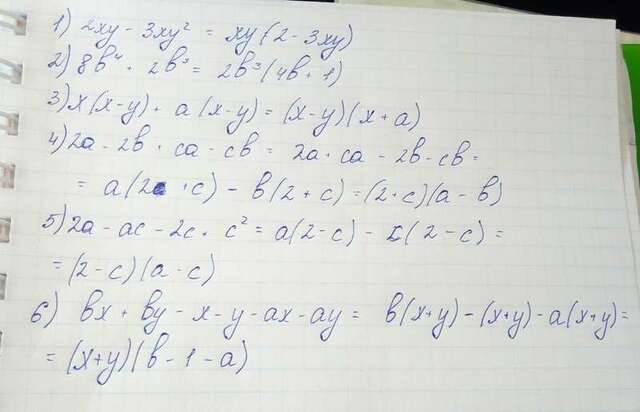 1) 2xy - 3xy² = xy(2 - 3xy)
2) 8b⁴ + 2b³ = 2b³(4b + 1)
3) x(x-y) + a(x-y) = (x-y)(x+a)
4) 2a - 2b + ca - cb = 2a + ca - 2b - cb =
= a(2 + c) - b(2 + c) = (2+c)(a - b)
5) 2a - ac - 2c + c² = a(2-c) - c(2-c) =
= (2-c)(a-c)
6) bx + by - x - y - ax - ay = b(x+y) - (x+y) - a(x+y) =
= (x+y)(b - 1 - a)